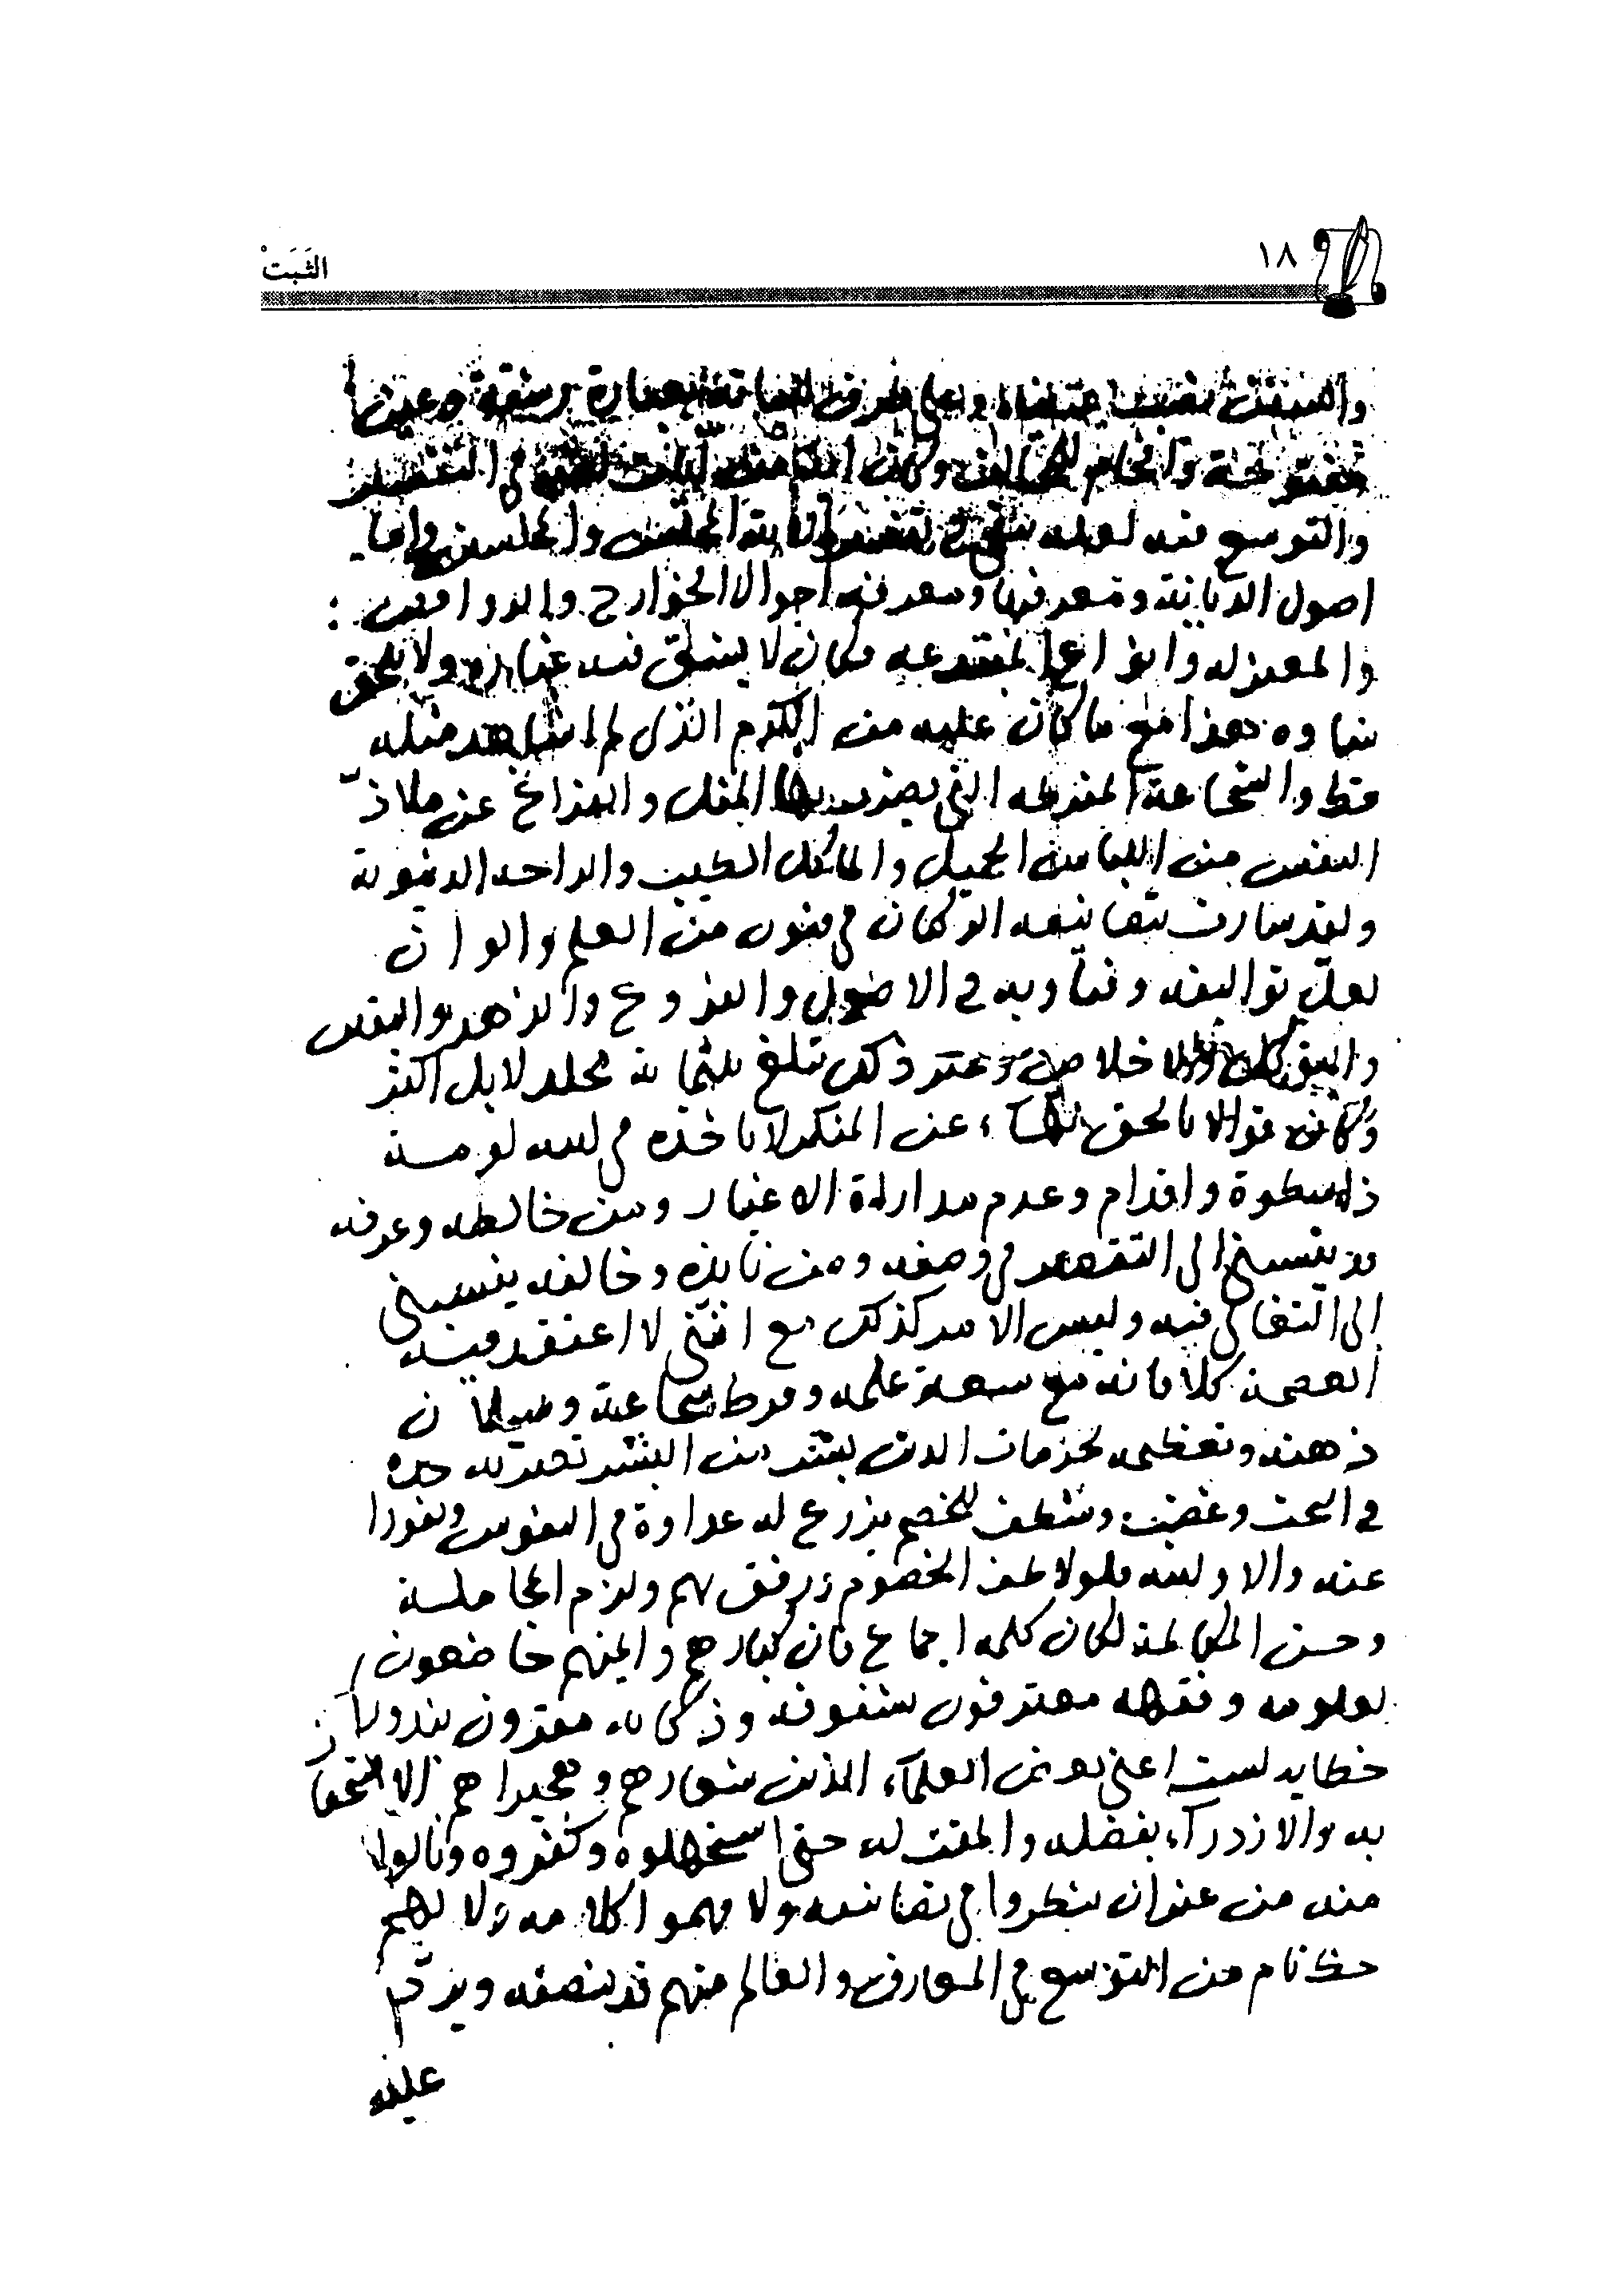 ١٨
الثَبَتْ
والسنة نصب عينيه وعلى طرف لسانه بعبارة رشقة وعين
مفتوحة وافحام للمخالف وكان آية من آيات الله في التفسير
والتوسع فيه لعله يبقى في تفسير الآية المجلس والمجلسين واما
اصول الديانة ومعرفتها ومعرفة احوال الخوارج والروافض
والمعتزله وانواع المبتدعه فكان لا يشق فيه غباره ولا يلحق
شاوه هذا مع ما كان عليه من الكرم الذى لم اشاهد مثله
قط والشجاعة المفرطه التى يضرب بها المثل والفراغ عن ملاذّ
النفس من اللباس الجميل والماكل الطيب والراحه الدنيوية
ولقد سارت بتصانيفه الركبان فى فنون من العلم والوان
لعل تواليفه وفتاويه فى الاصول والفروع والزهد واليقين
والتوكل والاخلاص وغير ذلك تبلغ ثلثماية مجلد لا بل اكثر
وكان قوالا بالحق نهآء عن المنكر لا تاخذه فى الله لومة
ذا سطوة واقدام وعدم مداراة الاغيار ومن خالطه وعرفه
قد ينسبنى الى التقصير فى وصفه ومن نابذه وخالفه ينسبنى
الى التغالى فيه وليس الامر كذلك مع اننى لا اعتقد فيه
العصمة كلا فانه مع سعة علمه وفرط شجاعته وسيلان
ذهنه وتعظيمه لحرمات الدين بشر من البشر تعتريه حده
فى البحث وغضب وشظف للخصم يزرع له عداوة فى النفوس ونفورا
عنه والا والله فلو لاطف الخصوم ورفق بهم ولزم المجاملة
وحسن المكالمة لكان كلمه اجماع فان كبارهم وايمتهم خاضعون
لعلومه وفقهه معترفون بشفوفه وذكايه مقرون بندور
خطايه لست اعنى بعض العلمآء الذين شعارهم وهجيراهم الاستخفاف
به والازدرآء بفضله والمقت له حتى استجهلوه وكفروه ونالوا
منه من غير ان ينظروا فى تصانيفه ولا فهموا كلامه ولا لهم
حظ تام من التوسع فى المعارف والعالم منهم قد ينصفه ويردّ
عليه